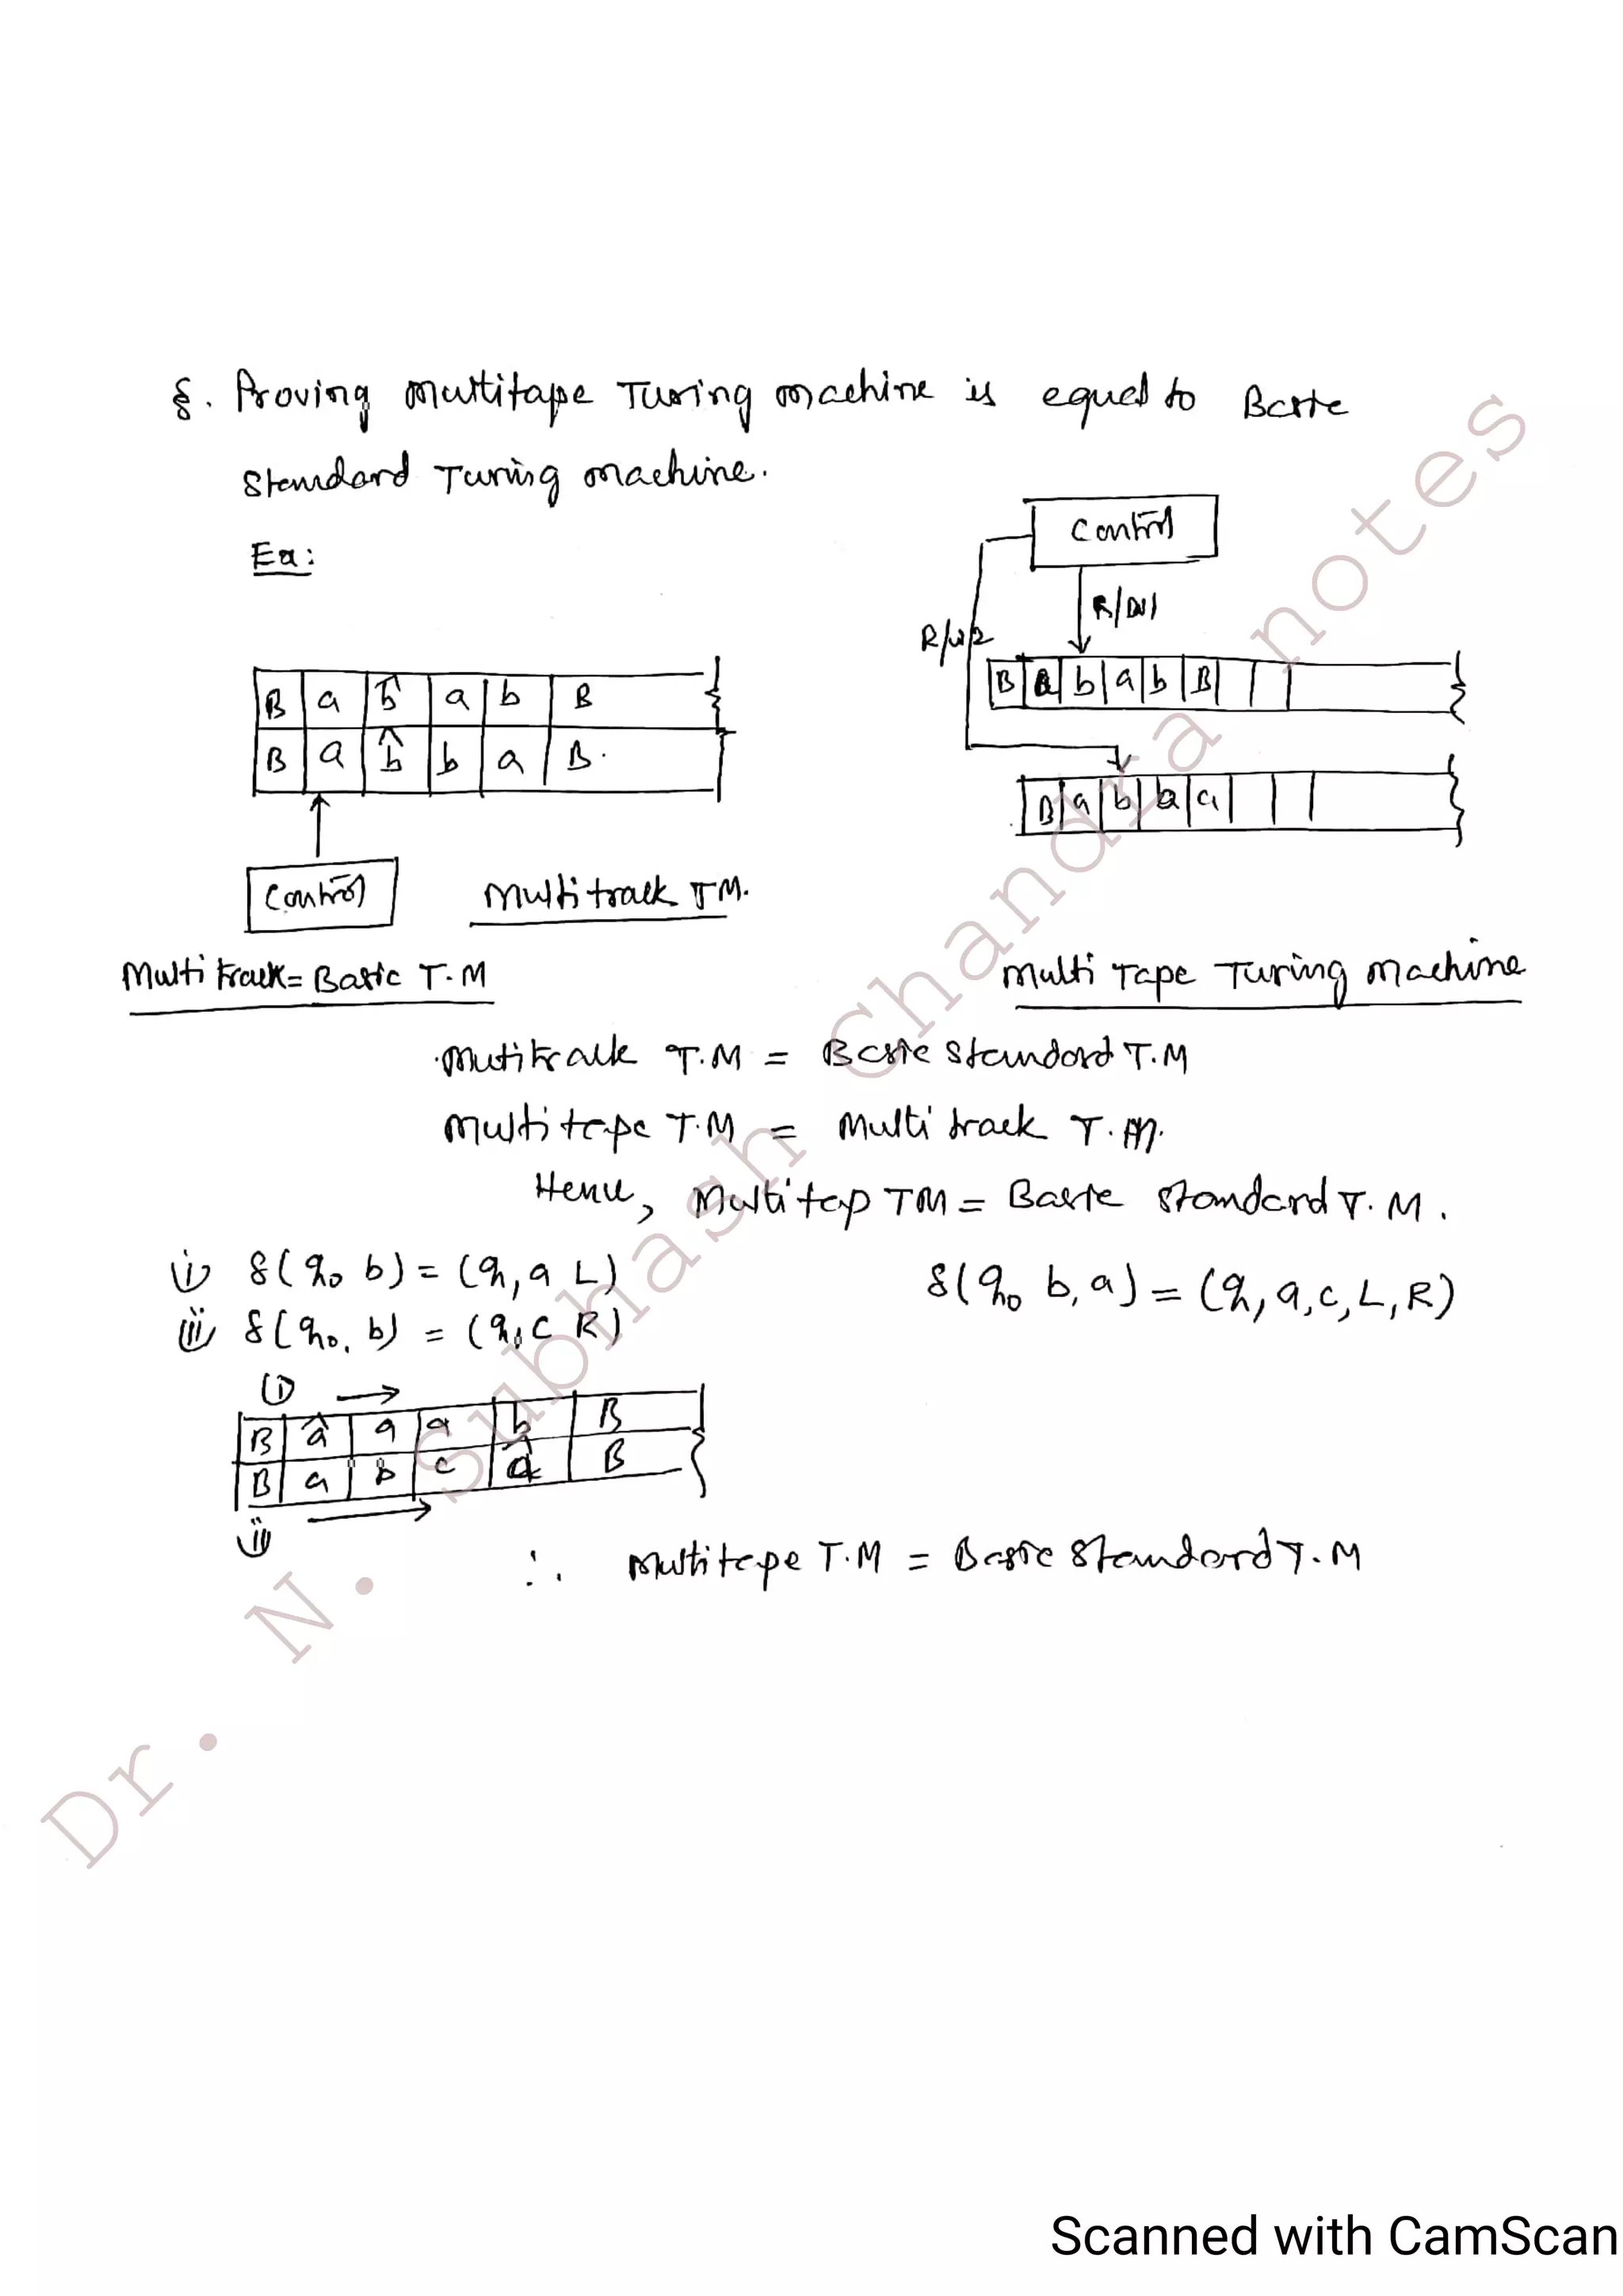 §. Proving Multitape Turing machine is equal to Basic
Standard Turing machine.
Ex:
Control
R/W1
R/W2
B a b̂ a b B
B a b̂ b a B.
B a b a b B
B a b b a
Control
Multi track TM.
Multi track = Basic T.M
Multi Tape Turing Machine
Mutitrack T.M = Basic Standard T.M
Multi tape T.M = Multi track T.M.
Hence, Multi tap TM = Basic Standard T.M.
i) δ(q₀ b) = (q₁, a L)
δ(q₀ b, a) = (q₁, a, c, L, R)
ii) δ(q₀, b) = (q₁, c R)
(i) →
B â a a b B
B a b c B
→
ii)
∴ Multitape T.M = Basic Standard T.M
Dr. N. Subhash Chandra notes
Scanned with CamScan